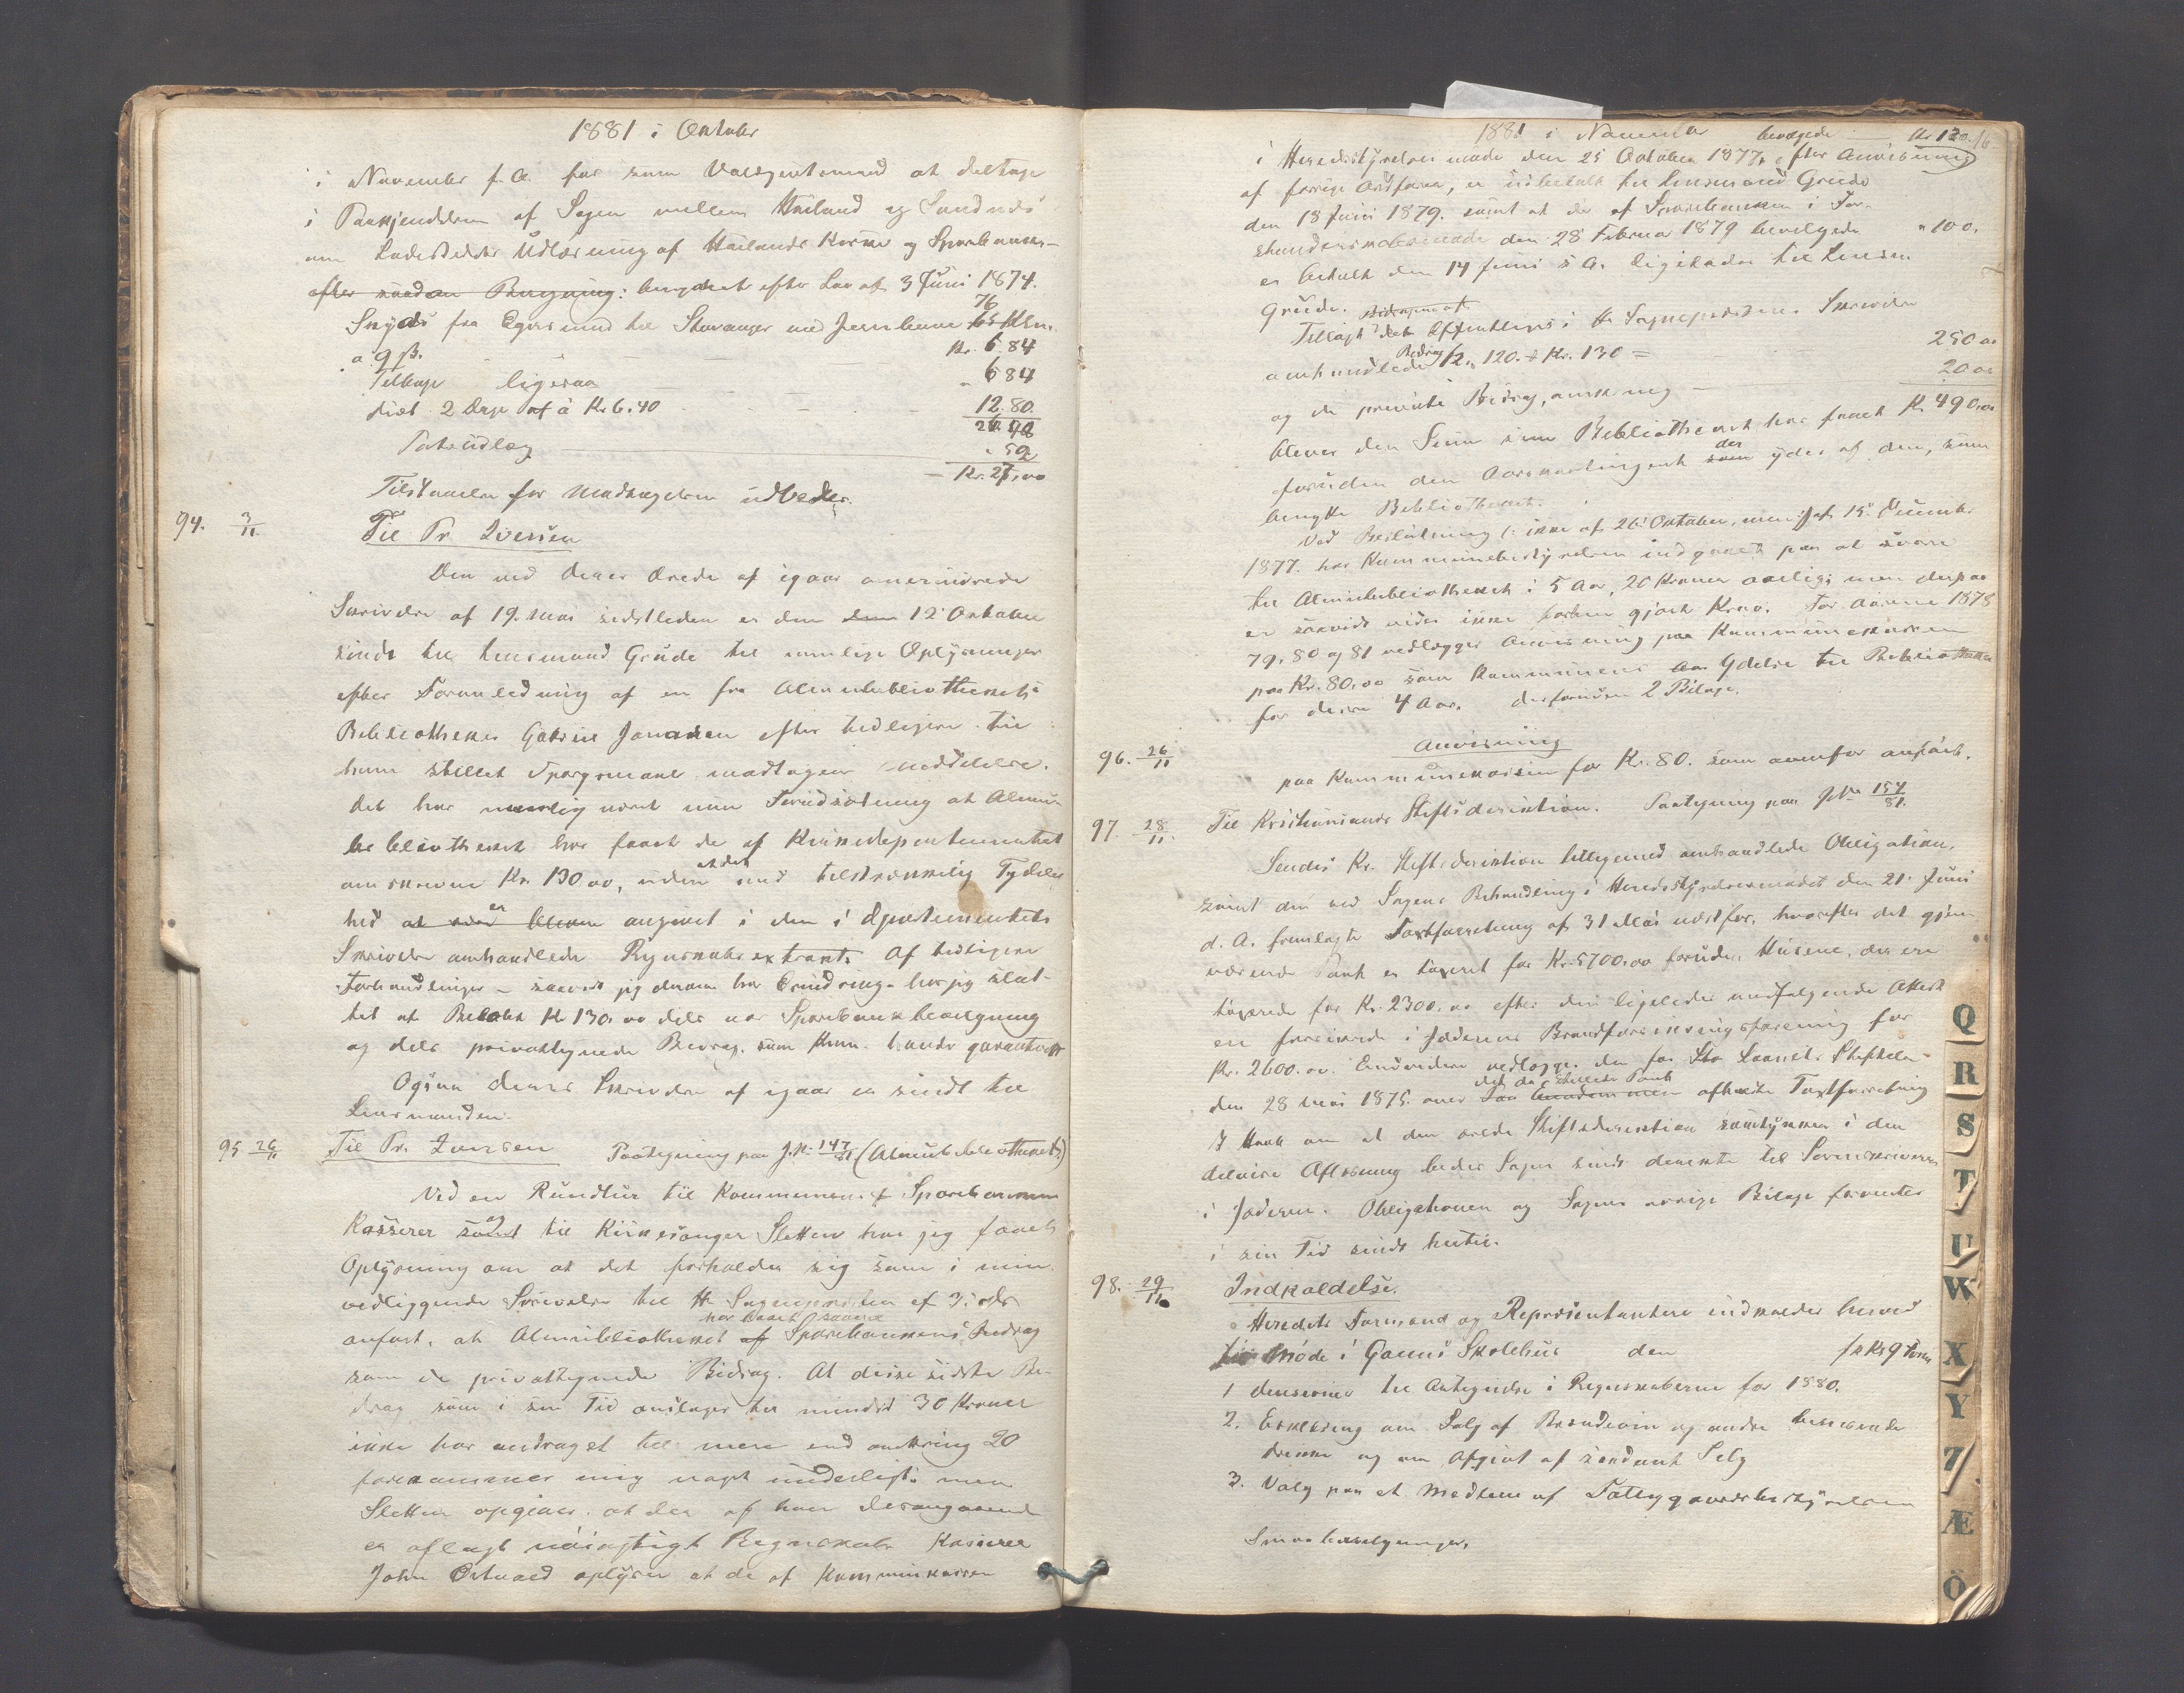 1881 i Oktober
i November f. A. for som Valgjentemand at deltage
i Paakjendelsen af Sagen mellem Høiland og Sandnæs
om Ladestedets Udløsning af Høilands Korn og Sparebanks-
efter saadan Beregning: beregnet efter Lov af 3 Juni 1874.
76
Skyds fra Egersund til Stavanger med Jernbane 65 Klm.
a. 9 ß. Kr. 6.84
Tilbage ligesaa " 6 84
diæt 2 Dage af à Kr 6.40 12.80
26.48
Toldudlæg " 52
Kr. 27,00
Tilstaaelse for Modtagelsen udbedes.
94. 3/11. Til Pr Iversen
Den ved Deres Ærede af igaar omerindrede
Skrivelse af 19. Mai sidstleden er den 12 Oktober
sendt til Lensmand Grude til nemlige Oplysninger
efter Formuledning af en fra Almuebibliothekets
Bibliotheker Gabriel Jonassen efter tidligere til
ham stillet Spørgsmaal modtagen Meddelelse.
det har nemlig været min Forudsætning at Almue-
bibliotheket har faaet de af Kirkedepartementet
omskrevne Kr. 130 00, uden at det med tilstrækkelig Tydelig-
hed er angivet i den i Departementets
Skrivelse omhandlede Regnskabsextrakt. Af tidligere
Forhandlinger - saavidt jeg derom har Erindring - har jeg slut-
tet at Beløbet Kr 130,00 dels var Sparebankbevilgning
og dels privattegnede Bidrag, som Kom. havde garanteret
Ogsaa Deres Skrivelse af igaar er sendt til
Lensmanden.
95 26/11 Til Pr. Iversen Paategning paa J.N. 147/81 (Almuebibliotheket)
Ved en Rundtur til Kommunens & Sparebankens
Kasserer og til Kirkesanger Sletten har jeg faaet
Oplysning om at det forholder sig som i min
vedliggende Skrivelse til Hr Sogneprsten af 3: ds
har faaet saavel
anført, at Almuebibliotheket af Sparebankens Bidrag
som de privattegnede Bidrag. At disse sidste Bi-
drag som i sin Tid ansloges til mindst 30 Kroner
ikke har andraget til mere end omkring 20
forekommer mig noget underligt; men
Sletten opgiver, at der af ham desangaaende
er aflagt nøiagtigt Regnskab. Kasserer
John Østraad oplyser at de af Kommunekassen
1881 i November bevilgede Kr 120./6
i Herredsstyrelses møde den 25 Oktober 1877, efter Anvisning
af forrige Ordfører, er udbetalt til Lensmand Grude
den 18 Juni 1879. samt at de af Sparebanken i For-
standerskabsmøde den 28 Februar 1879 bevilgede " 100.
er betalt den 14 Juni s. A. ligeledes til Lensm.
Grude.
Tillagt det i Hr Sogneprestens Skrivelse
omhandlede Bidrag Kr. 120. + Kr. 130 = 250 00
og de private Bidrag, omkring 20 00
bliver den Sum som Bibliotheket har faaet Kr 490,00
foruden den Aarskontingent der ydes af dem, som
benytte Bibliotheket.
Ved Beslutning (: ikke af 26. Oktober, men :) af 15. December
1877. har Kommunebestyrelsen indgaaet paa at svare
til Almuebibliotheket i 5 Aar, 20 Kroner aarlig; men derpaa
er saavidt vides ikke forhen gjort Krav. For Aarene 1878
79, 80 og 81 vedlægges Anvisning paa Kommunekassen
paa Kr. 80,00 som Kommunens Ydelse til Bibliotheket
for disse 4 Aar. desforuden 2 Bilage.
96. 26/11 Anvisning
paa Kommunekassen for Kr. 80. som ovenfor anført.
97. 28/11. Til Kristiansands Stiftsdirektion. Paategning paa JNr 154/81.
Sendes Kr. Stiftsdirektion tilligemed omhandlede Obligation,
samt den ved Sagens Behandling i Herredsstyrelsesmødet den 21. Juni
d. A. fremlagte Taxtforretning af 31 Mai næstfør, hvorefter det gjen-
værende Pant er taxeret for Kr. 5700.00 foruden Husene, der ere
taxerede for Kr. 2300.00 efter den ligeledes medfølgende Attest
ere forsikrede i Jæderens Brandforsikringsforening for
Kr. 2600.00. Endvidere vedlægges den for Laanets Stiftelse
den 28 Mai 1875. over det da stillede Pant afholdte Taxtforretning
I Haab om at den ærede Stiftsdirektion samtykker i den
delvise Afløsning bedes Sagen sendt direkte til Sorenskriveren
i Jæderen. Obligationen og Sagens øvrige Bilage forventes
i sin Tid sendt hertil.
98. 29/11. Indkaldelse.
Herredets Formænd og Repræsentantere indkaldes herved
til Møde i Gands Skolehus den fr Kl 9 Form
1 Decisioner til Antegnelse i Regnskaberne for 1880.
2. Erklæring om Salg af Brændevin og andre berusende
drikke og om Afgivt af saadant Salg
3. Valg paa et Medlem af Fattiggaardsbestyrelsen
Smaabevilgninger.
Q
R
S
T
U
W
X
Y
Z
Æ
Ö